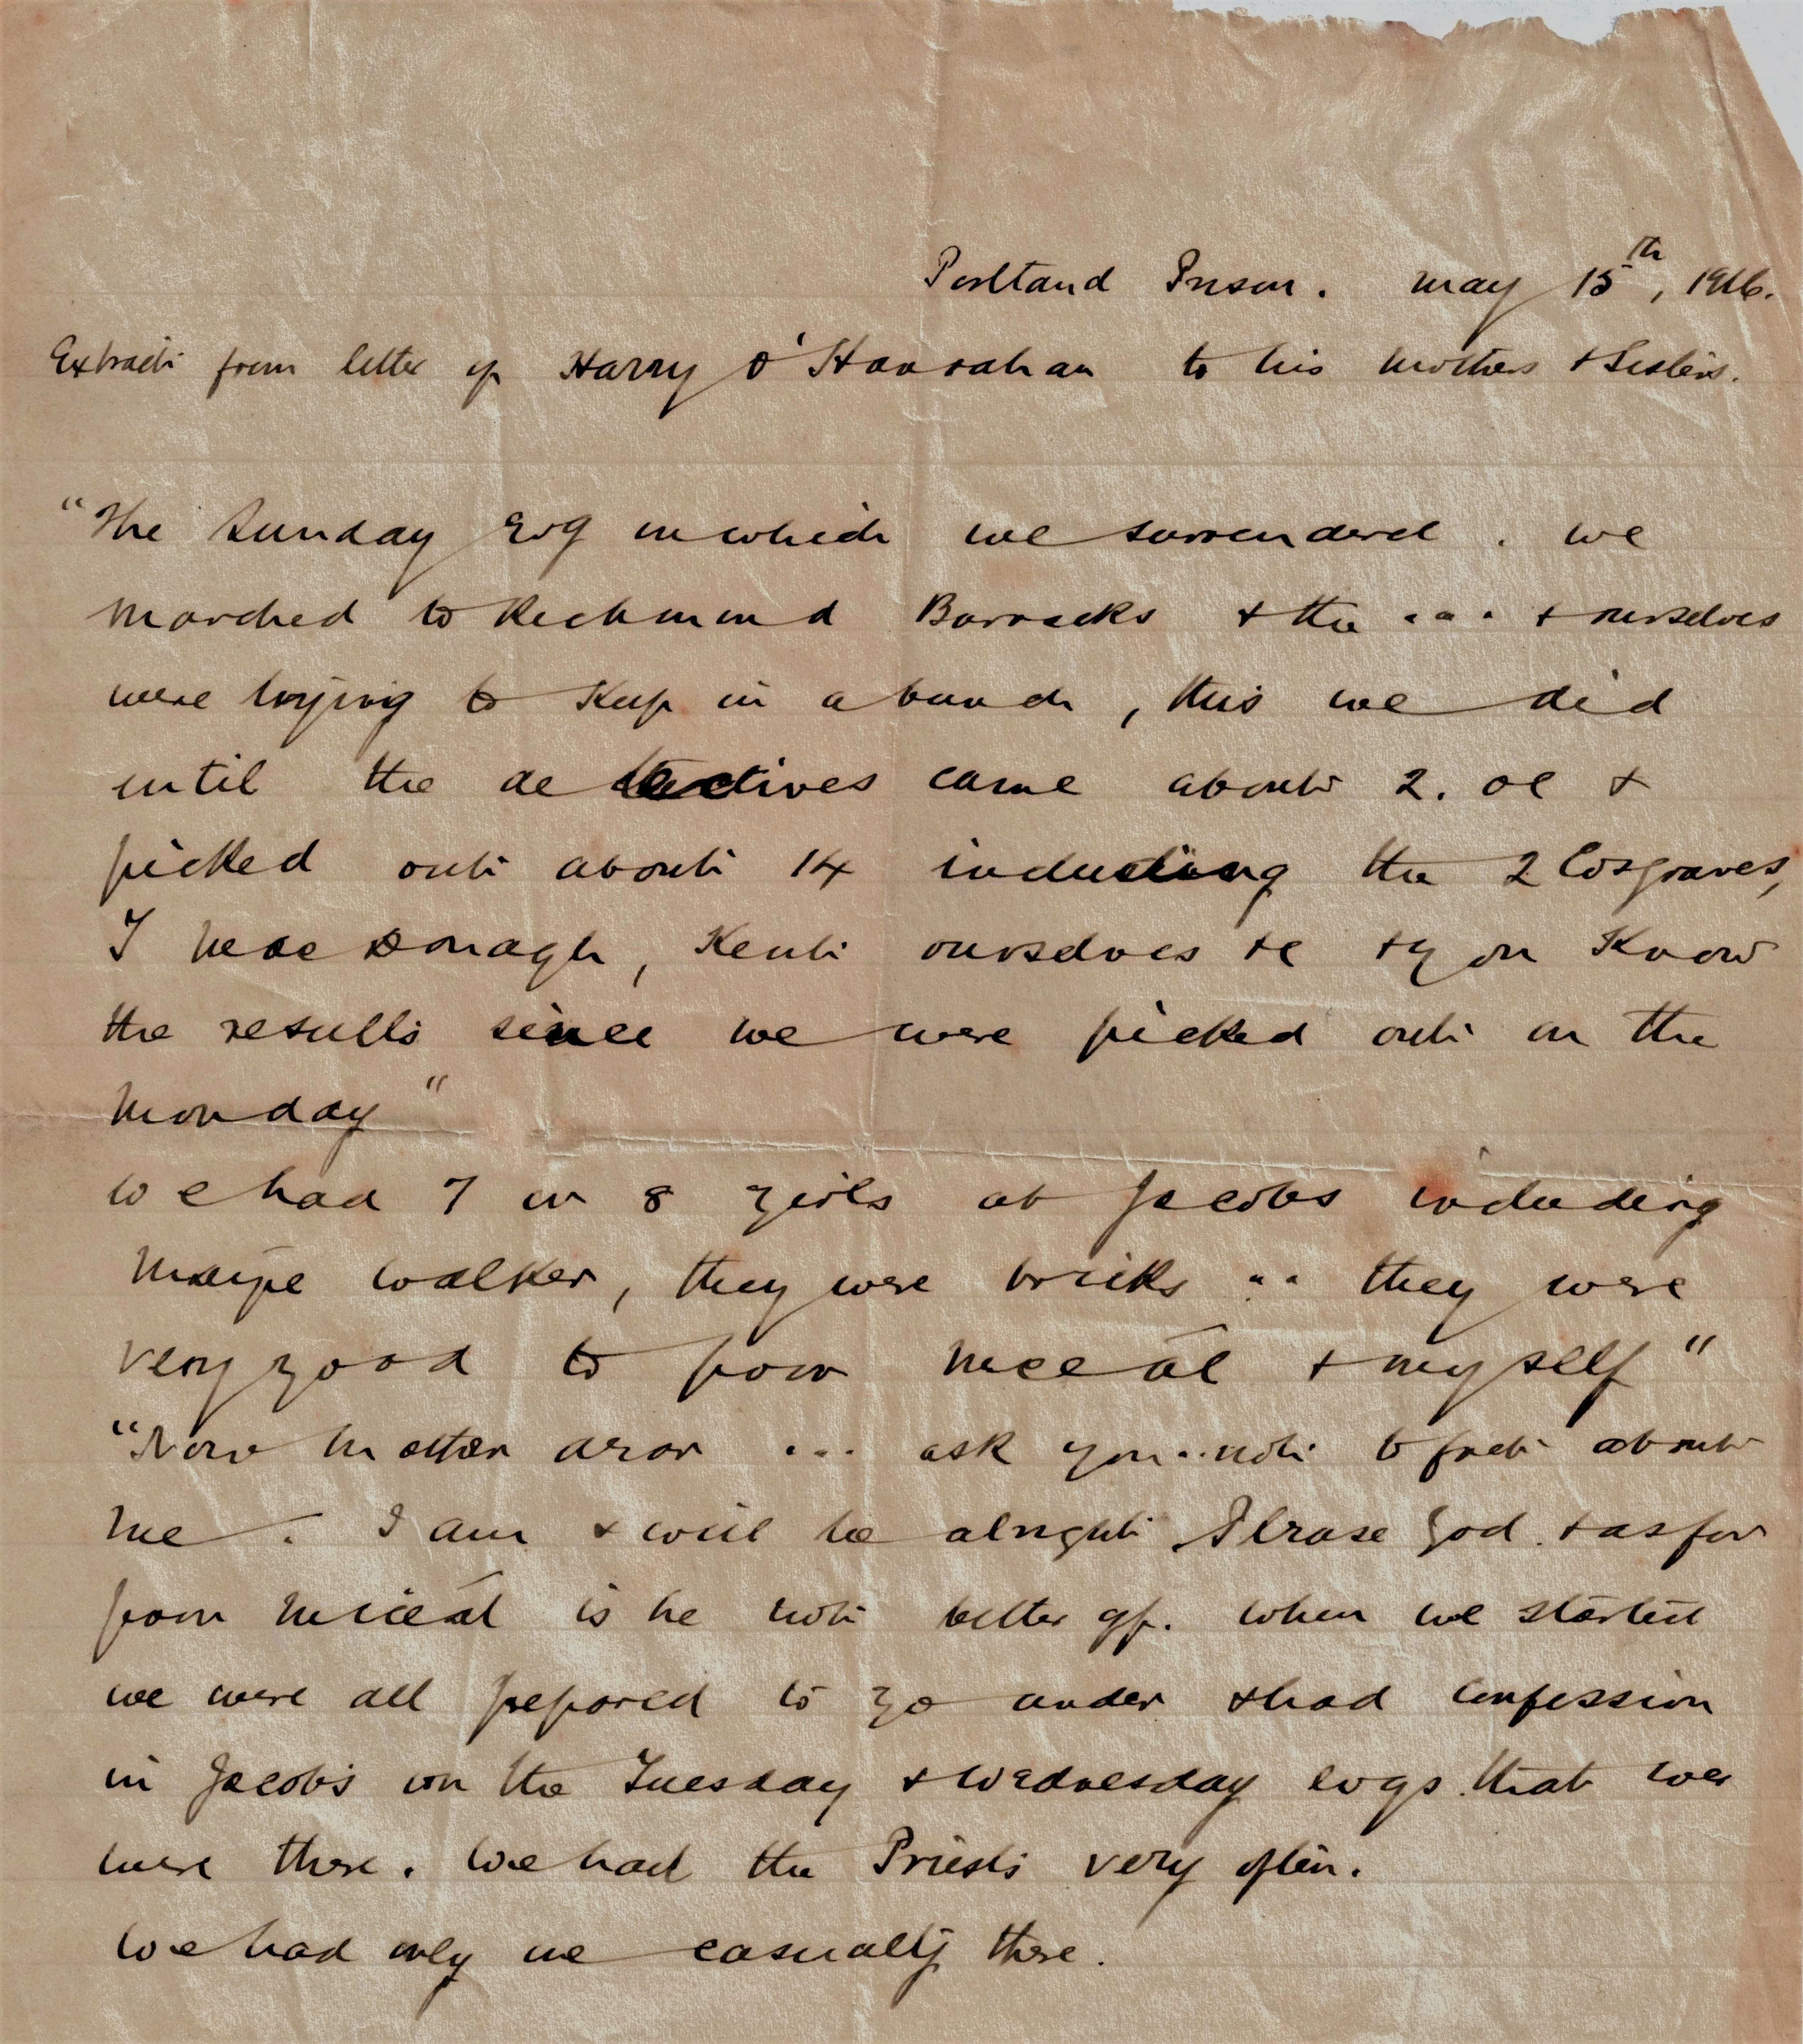 Portland Prison. May 15th, 1916.
Extract from letter of Harry O'Hanrahan to his mother & Sisters.
"The Sunday Evg on which we surrendered. we
marched to Richmond Barracks & the ... & ourselves
were trying to keep in a bunch, this we did
until the detectives came about 2. oc &
picked out about 14 including the 2 Cosgraves,
J MacDonagh, Kent ourselves &c & you know
the results since we were picked out on the
Monday"
We had 7 or 8 girls at Jacobs including
Maire Walker, they were bricks ... they were
very good to poor Miceál & myself"
"Now Mother aron ... ask you .. not to fret about
me. I am & will be alright Please God. & as for
poor Miceál is he not better off. when we started
we were all prepared to go under & had confession
in Jacob's on the Tuesday & Wednesday evgs that we
were there. We had the Priests very often.
We had only one casualty there.